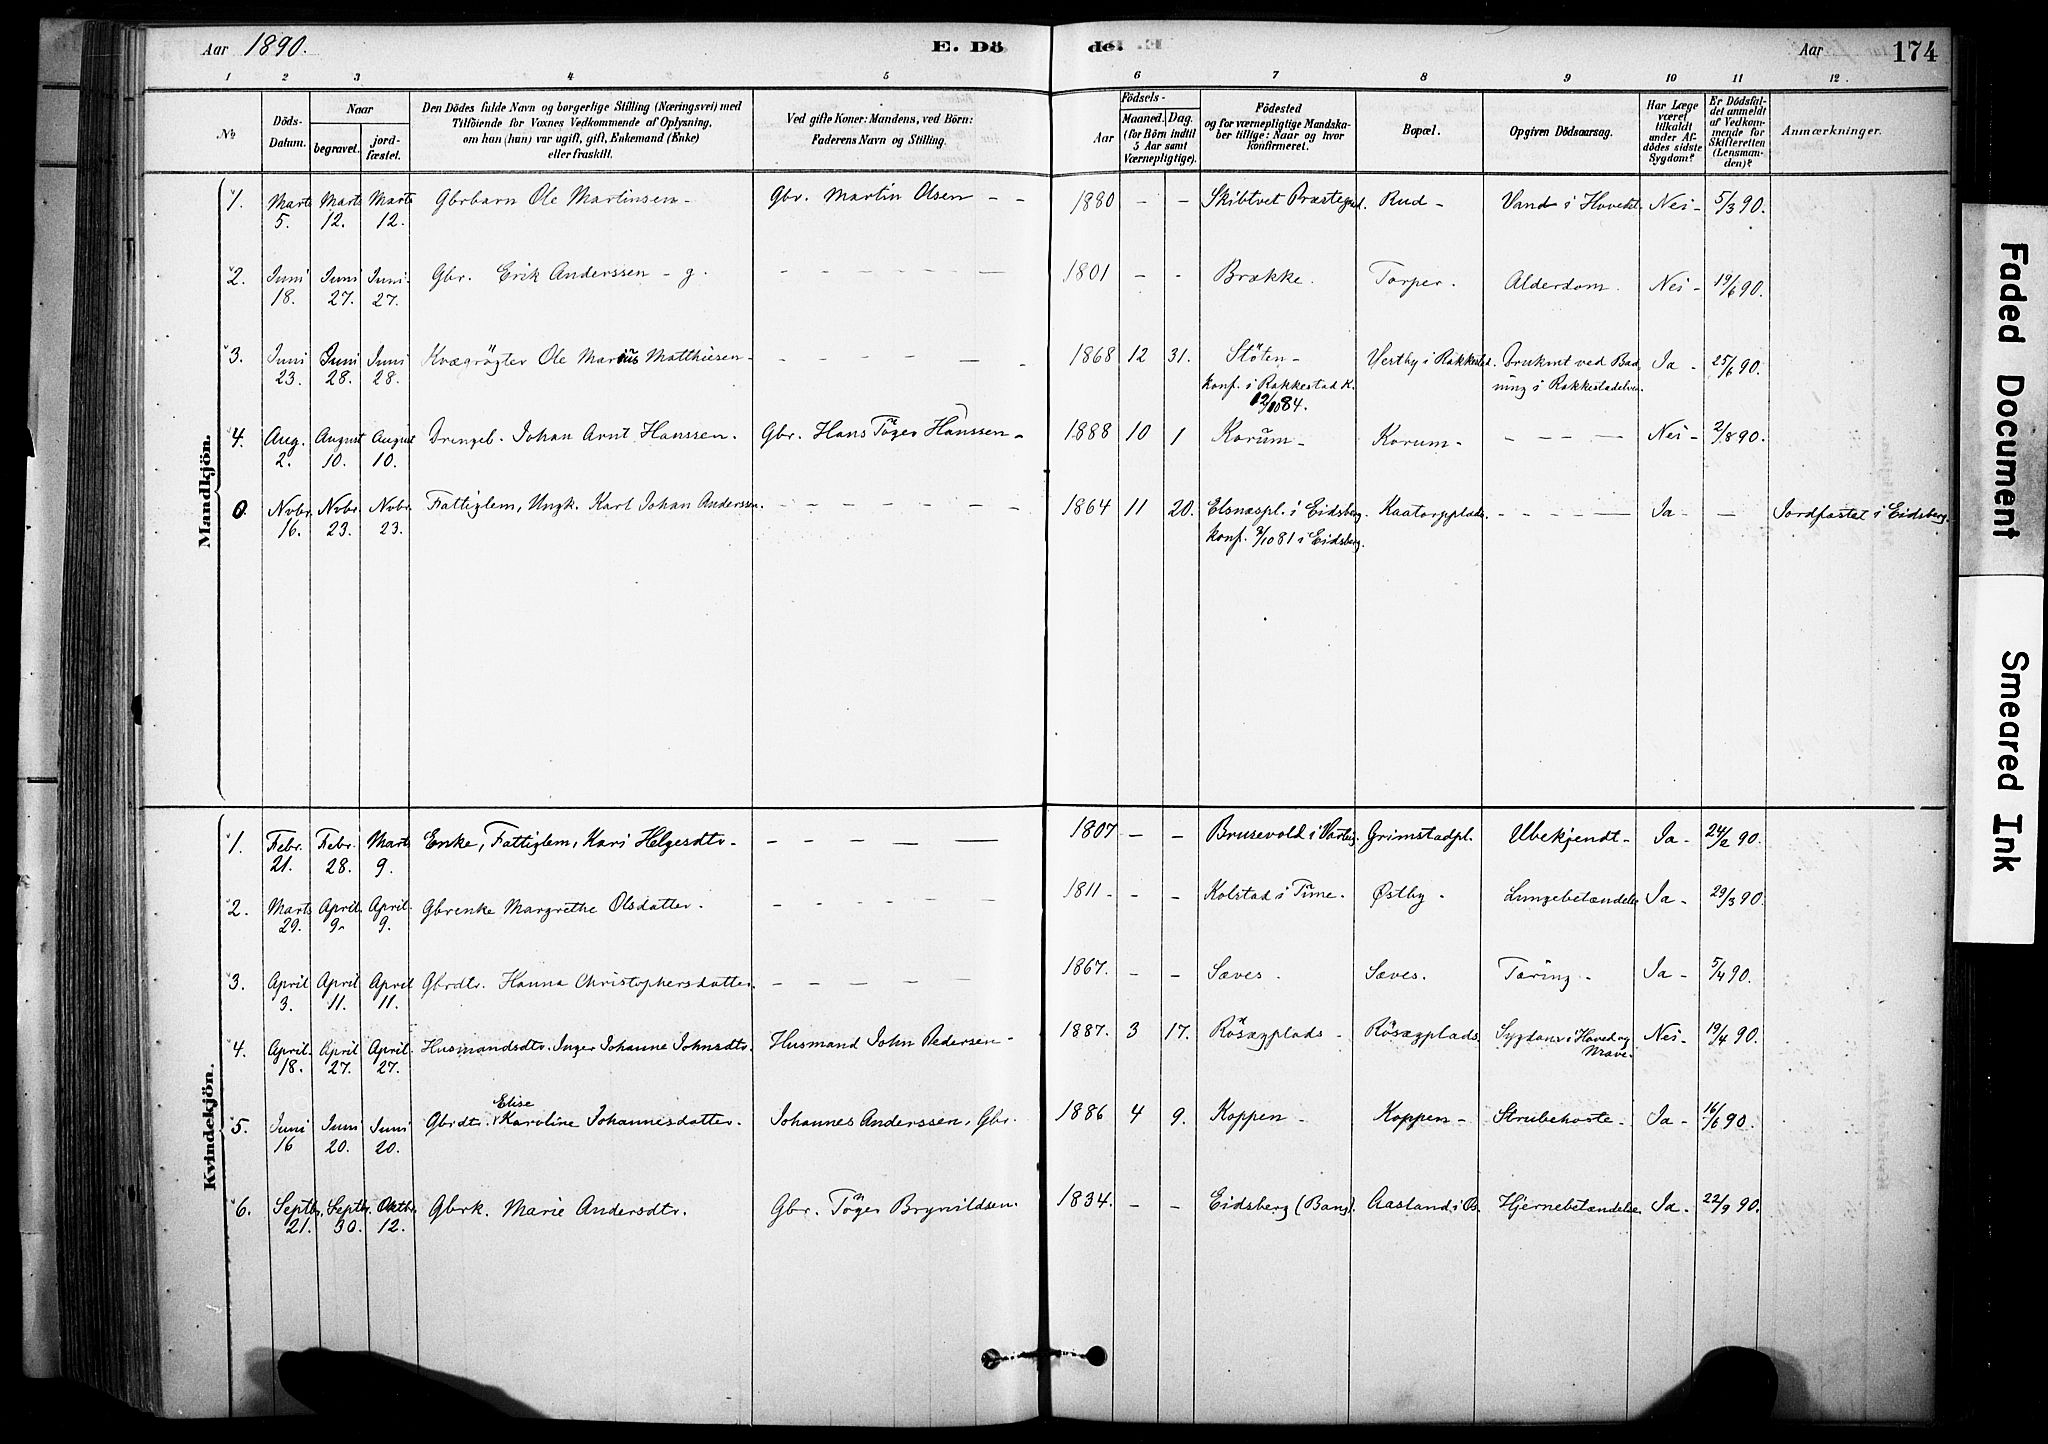 Aar 1890.
E. Dö
de.
Aar
174
1 2 3 4 5 6 7 8 9 10 11 12.
№
Döds-Datum.
Naar
begravet.
jord-fæstet.
Den Dödes fulde Navn og borgerlige Stilling (Næringsvei) med
Tilföiende for Voxnes Vedkommende af Oplysning,
om han (hun) var ugift, gift, Enkemand (Enke)
eller fraskilt.
Ved gifte Koner: Mandens, ved Börn:
Faderens Navn og Stilling.
Födsels-
Aar
Maaned. Dag.
(for Börn indtil
5 Aar samt
Værnepligtige).
Födested
og for værnepligtige Mandska-
ber tillige: Naar og hvor
konfirmeret.
Bopæl.
Opgiven Dödsaarsag.
Har Læge
været
tilkaldt
under Af-
dödes sidste
Sygdom?
Er Dödsfal-
det anmeldt
af Vedkom-
mende for
Skifteretten
(Lensman-
den)?
Anmærkninger.
Mandkjön.
1. Marts 5. Marts 12. Marts 12. Gbrbarn Ole Martinsen - Gbr. Martin Olsen - - 1880 - - Skibtvet Præstegd. Rud - Vand i Hovedt Nei - 5/3 90.
2. Juni 18. Juni 27. Juni 27. Gbr. Erik Anderssen - g. - - - - - 1801 - - Brække. Torper. Alderdom. Nei - 19/6 90.
3. Juni 23. Juni 28. Juni 28. Kvægrögter Ole Marius Matthiesen - - - - - - 1868 12 31. Stöten - Vestby i Rakkestd. Druknet ved Bad Ja - 25/6 90.
konf. i Rakkestad K. 12/10 84. ning i Rakkestadelven.
4. Aug. 2. August 10. August 10. Drengeb. Johan Arnt Hanssen. Gbr. Hans Töger Hanssen - 1888 10 1 Korum - Korum - - - - - Nei - 2/8 90.
0. Nvbr. 16. Nvbr. 23. Nvbr. 23. Fattiglem, Ungk. Karl Johan Anderssen. - - - - - 1864 11 20. Elsnæspl. i Eidsberg. Kaatorpplads. - - - - Ja - - Jordfæstet i Eidsberg.
konf. 2/10 81 i Eidsberg.
Kvindekjön.
1. Febr. 21. Febr. 28. Marts 9. Enke, Fattiglem, Kari Helgesdtr. - - - - - 1807 - - Brusevold i Varteig. Grimstadpl. Ubekjendt - Ja - 24/2 90.
2. Marts 29. April 9. April 9. Gbrenke Margrethe Olsdatter. - - - - - 1811 - - - Kolstad i Tune. Østby. Lungebetændelse Ja - 29/3 90.
3. April 3. April 11. April 11. Gbrdtr. Hanna Christophersdatter. - - - - - 1867. - - Sæves. Sæves. Tæring - Ja - 5/4 90.
4. April 18. April 27. April 27. Husmandsdtr. Inger Johanne Johnsdtr. Husmand John Pedersen - 1887. 3 17. Rösægplads - Rösægplads. Sygdom i Hoved og Mave. Nei - 19/4 90.
5. Juni 16 Juni 20. Juni 20. Gbrdtr. Elise Karoline Johannesdatter. Johannes Anderssen, Gbr. 1886 4 9. Koppen - Koppen - Strubehoste - Ja - 16/6 90.
6. Septbr. 21. Septbr. 30. Oktbr. 12. Gbrk. Marie Andersdtr. Gbr. Töger Brynildsen. 1834. - - Eidsberg (Bang). Aasland i Ø. Hjernebetændelse Ja - 22/9 90.
Faded Document
Smeared Ink